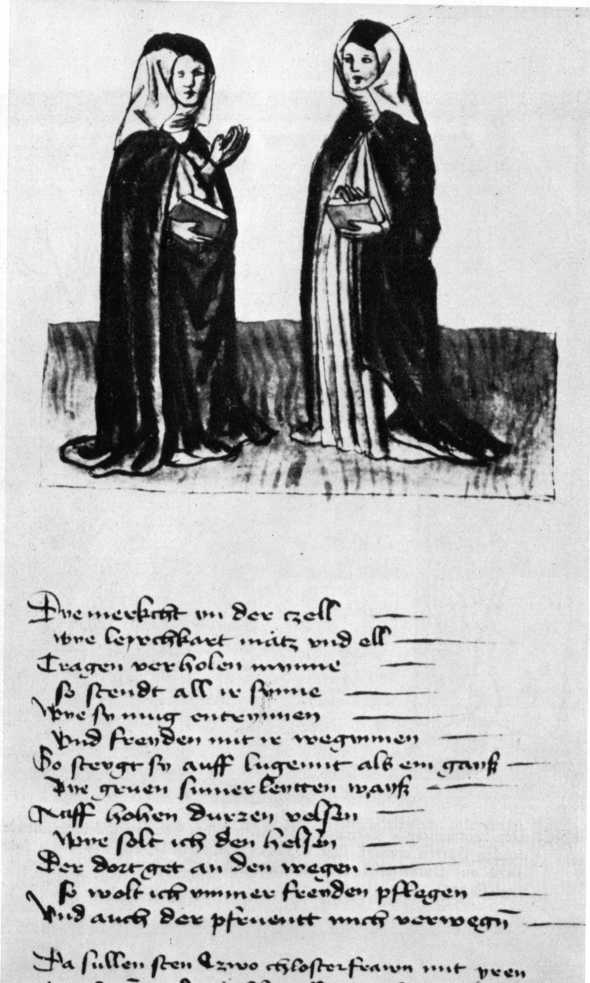 Dye merkcht yn der czell
wye leyrchkart mätz vnd ell
Tragen verholen mynne
so stendt all ir synne
Wye sy mug entrynnen
Vnd freyden mit ir wegynnen
So steygt sy auff lugent als ein gans
Dye gruen sumerleytten
Auff hohen durren velsen
Wye solt ich den helsen
Der dort get an den wegen
so wolt ich ymmer freyden pflegen
Vnd auch der pfruentt mich verwegn
Da sullen sten czwo chlosterfrawn mit yren